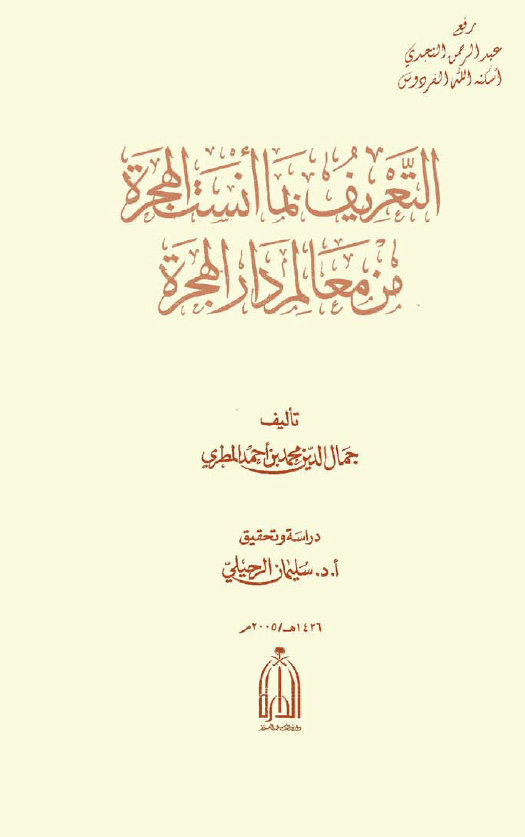 رفع
عبد الرحمن النجدي
أسكنه الله الفردوس
التَّعْرِيفُ بِمَا أنسَت الهِجْرَة
مِنْ مَعَالِم دَارِ الهِجْرَة
تأليف
جمال الدّين محمد بن أحمد المطري
دراسة وتحقيق
أ.د. سليمان الرحيليّ
١٤٢٦هـ/٢٠٠٥م
الدارة